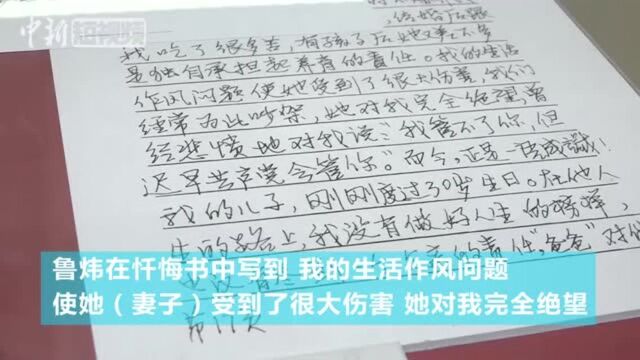 中新短视频
结婚后跟
我吃了很多苦，有孩子后她又事不多
是独自承担起养育的责任。我的生活
作风问题使她受到了很大伤害，我们
经常为此吵架，她对我完全绝望，曾
经悲愤地对我说："我管不了你，但
迟早共产党会管你。"而今，正是一语成谶！
我的儿子，刚刚度过30岁生日。在他人
生的路上，我没有做好人生的榜样，
的责任，"爸爸"对他
鲁炜在忏悔书中写到 我的生活作风问题
使她（妻子）受到了很大伤害 她对我完全绝望